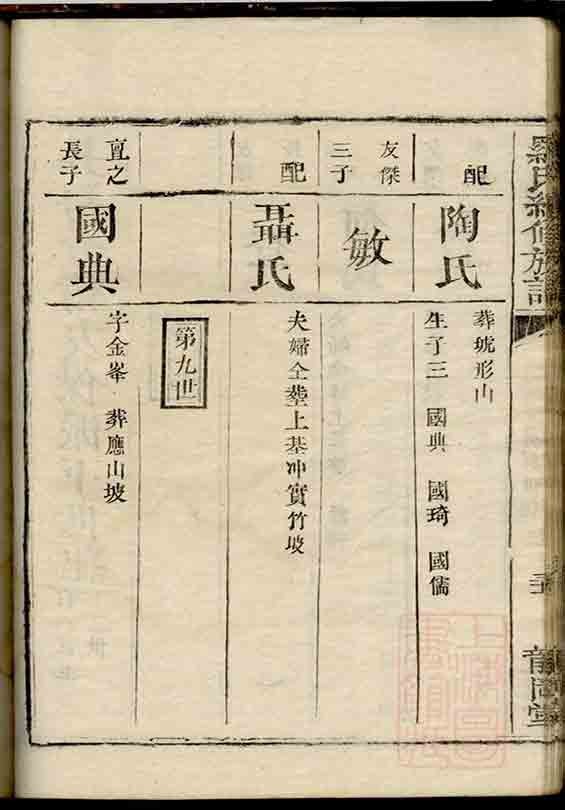 羅氏續修族譜
配
陶氏
葬琥形山
生子三 國典 國琦 國儒
友傑
三子
敏
配
聶氏
夫婦仝塟上基冲實竹坡
第九世
亶之
長子
國典
字金峯 葬應山坡